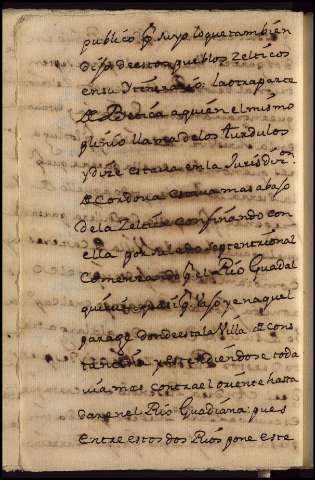 publico q̃ suyo lo que tambien
dijo de estos pueblos Zelticos
en su Ytinerario; la otra parte
de Betica a quien el mismo
plinio llama de los turdulos
y dize estava en la Jurisdic.on
de Cordova estava mas abajo
de la Zeltica confinando con
ella por su lado septentrional
Comenzando q̃ el Rio Guadal
quivir passi q̃ bajo y en aquel
parage donde esta la Villa de Cons
tantina y estendiendose toda
via mas contra el oriente hasta
dar en el Rio Guadiana: pues
entre estos dos Rios pone este